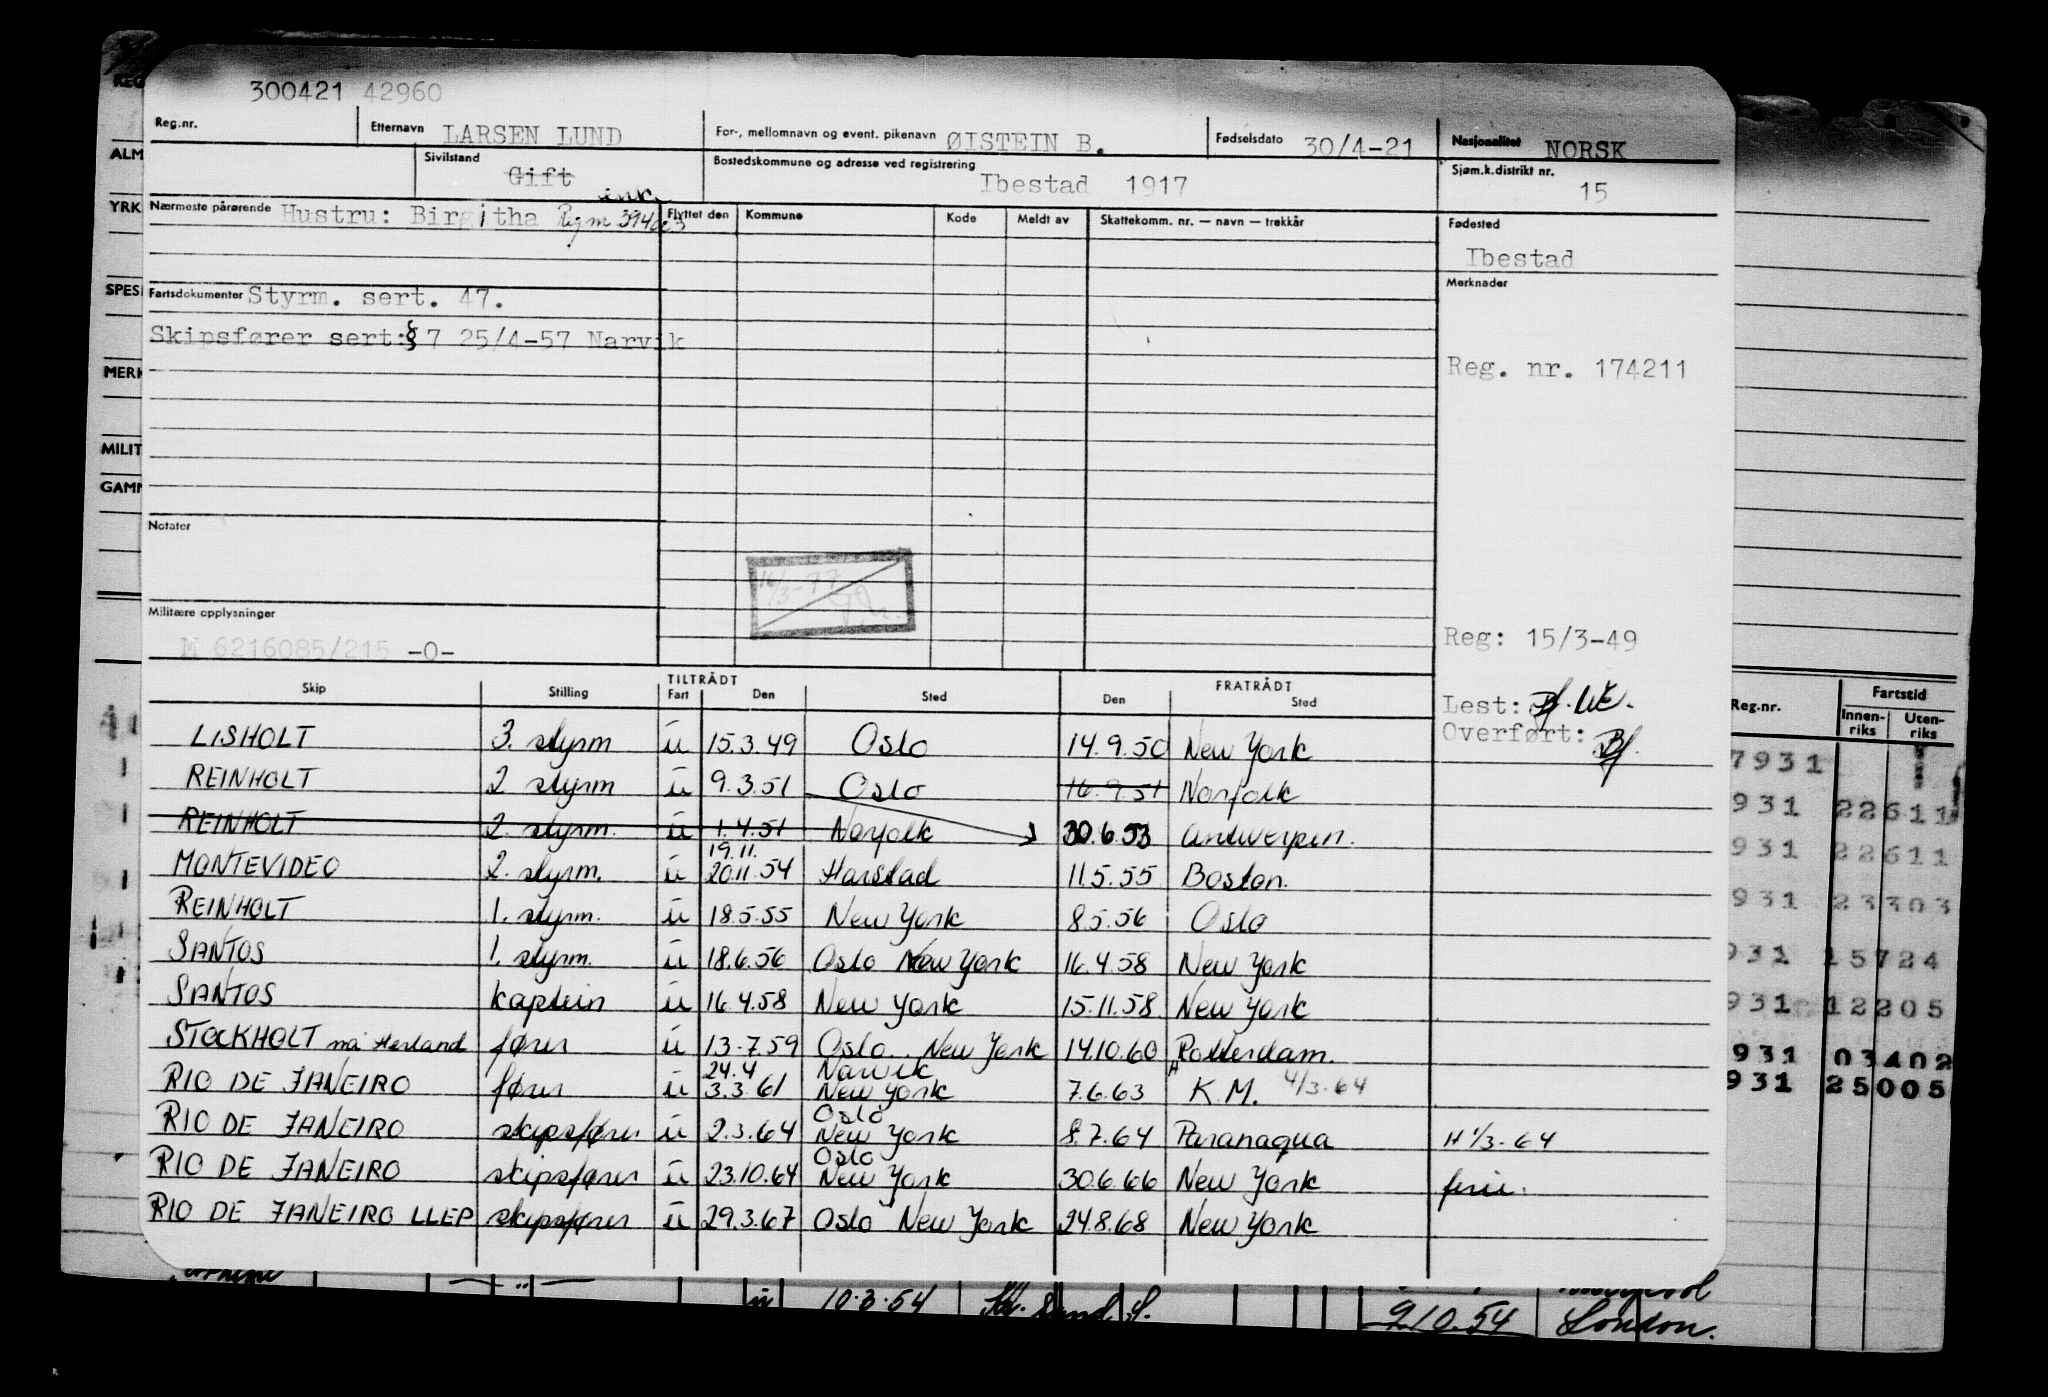 300421 42960
Reg.nr. Etternavn LARSEN LUND For-, mellomnavn og event. pikenavn ØISTEIN B. Fødselsdato 30/4-21 Nasjonalitet NORSK
Sivilstand Gift Bostedskommune og adresse ved registrering Ibestad 1917 Sjøm.k.distrikt nr. 15
enk.
Nærmeste pårørende Hustru: Birgitha Flyttet den Kommune Kode Meldt av Skattekomm. nr. — navn — trekkår Fødested
Ibestad
Fartsdokumenter Styrm. sert. 47. Merknader
Skipsfører sert:§ 7 25/4-57 Narvik
Reg. nr. 174211
Notater
16/3-77
Militære opplysninger
M 6216085/215 -0- Reg: 15/3-49
Skip Stilling TILTRÅDT Fart Den Sted FRATRÅDT Den Sted
Lest:
Overført:
LISHOLT 3. styrm u 15.3.49 Oslo 14.9.50 New York
REINHOLT 2 styrm u 9.3.51 Oslo 16.9.51 Norfolk
REINHOLT 2. styrm. u 1.4.51 Norfolk 30.6.53 Antwerpen.
19.11.
MONTEVIDEO 2. styrm. u 20.11.54 Harstad 11.5.55 Boston.
REINHOLT 1. styrm. u 18.5.55 New York 8.5.56 Oslo
SANTOS 1. styrm. u 18.6.56 Oslo New York 16.4.58 New York
SANTOS kaptein u 16.4.58 New York 15.11.58 New York
STOCKHOLT nå Herland fører u 13.7.59 Oslo. New York 14.10.60 Rotterdam.
24.4 Narvik
RIO DE JANEIRO fører u 3.3.61 New York 7.6.63 K.M. 4/3.64
Oslo
RIO DE JANEIRO skipsfører u 2.3.64 New York 8.7.64 Paranaqua H 1/3-64
Oslo
RIO DE JANEIRO skipsfører u 23.10.64 New York 30.6.66 New York ferie.
RIO DE JANEIRO LLEP skipsfører u 29.3.67 Oslo New York 24.8.68 New York
REG
ALM
YRK
SPESI
MERK
MILIT
GAMM
Reg.nr. Fartstid
Innenriks Utenriks
7931
931 22611
931 22611
931 23303
931 15724
931 12205
931 03402
931 25005
u 10.3.54 9.10.54 London.